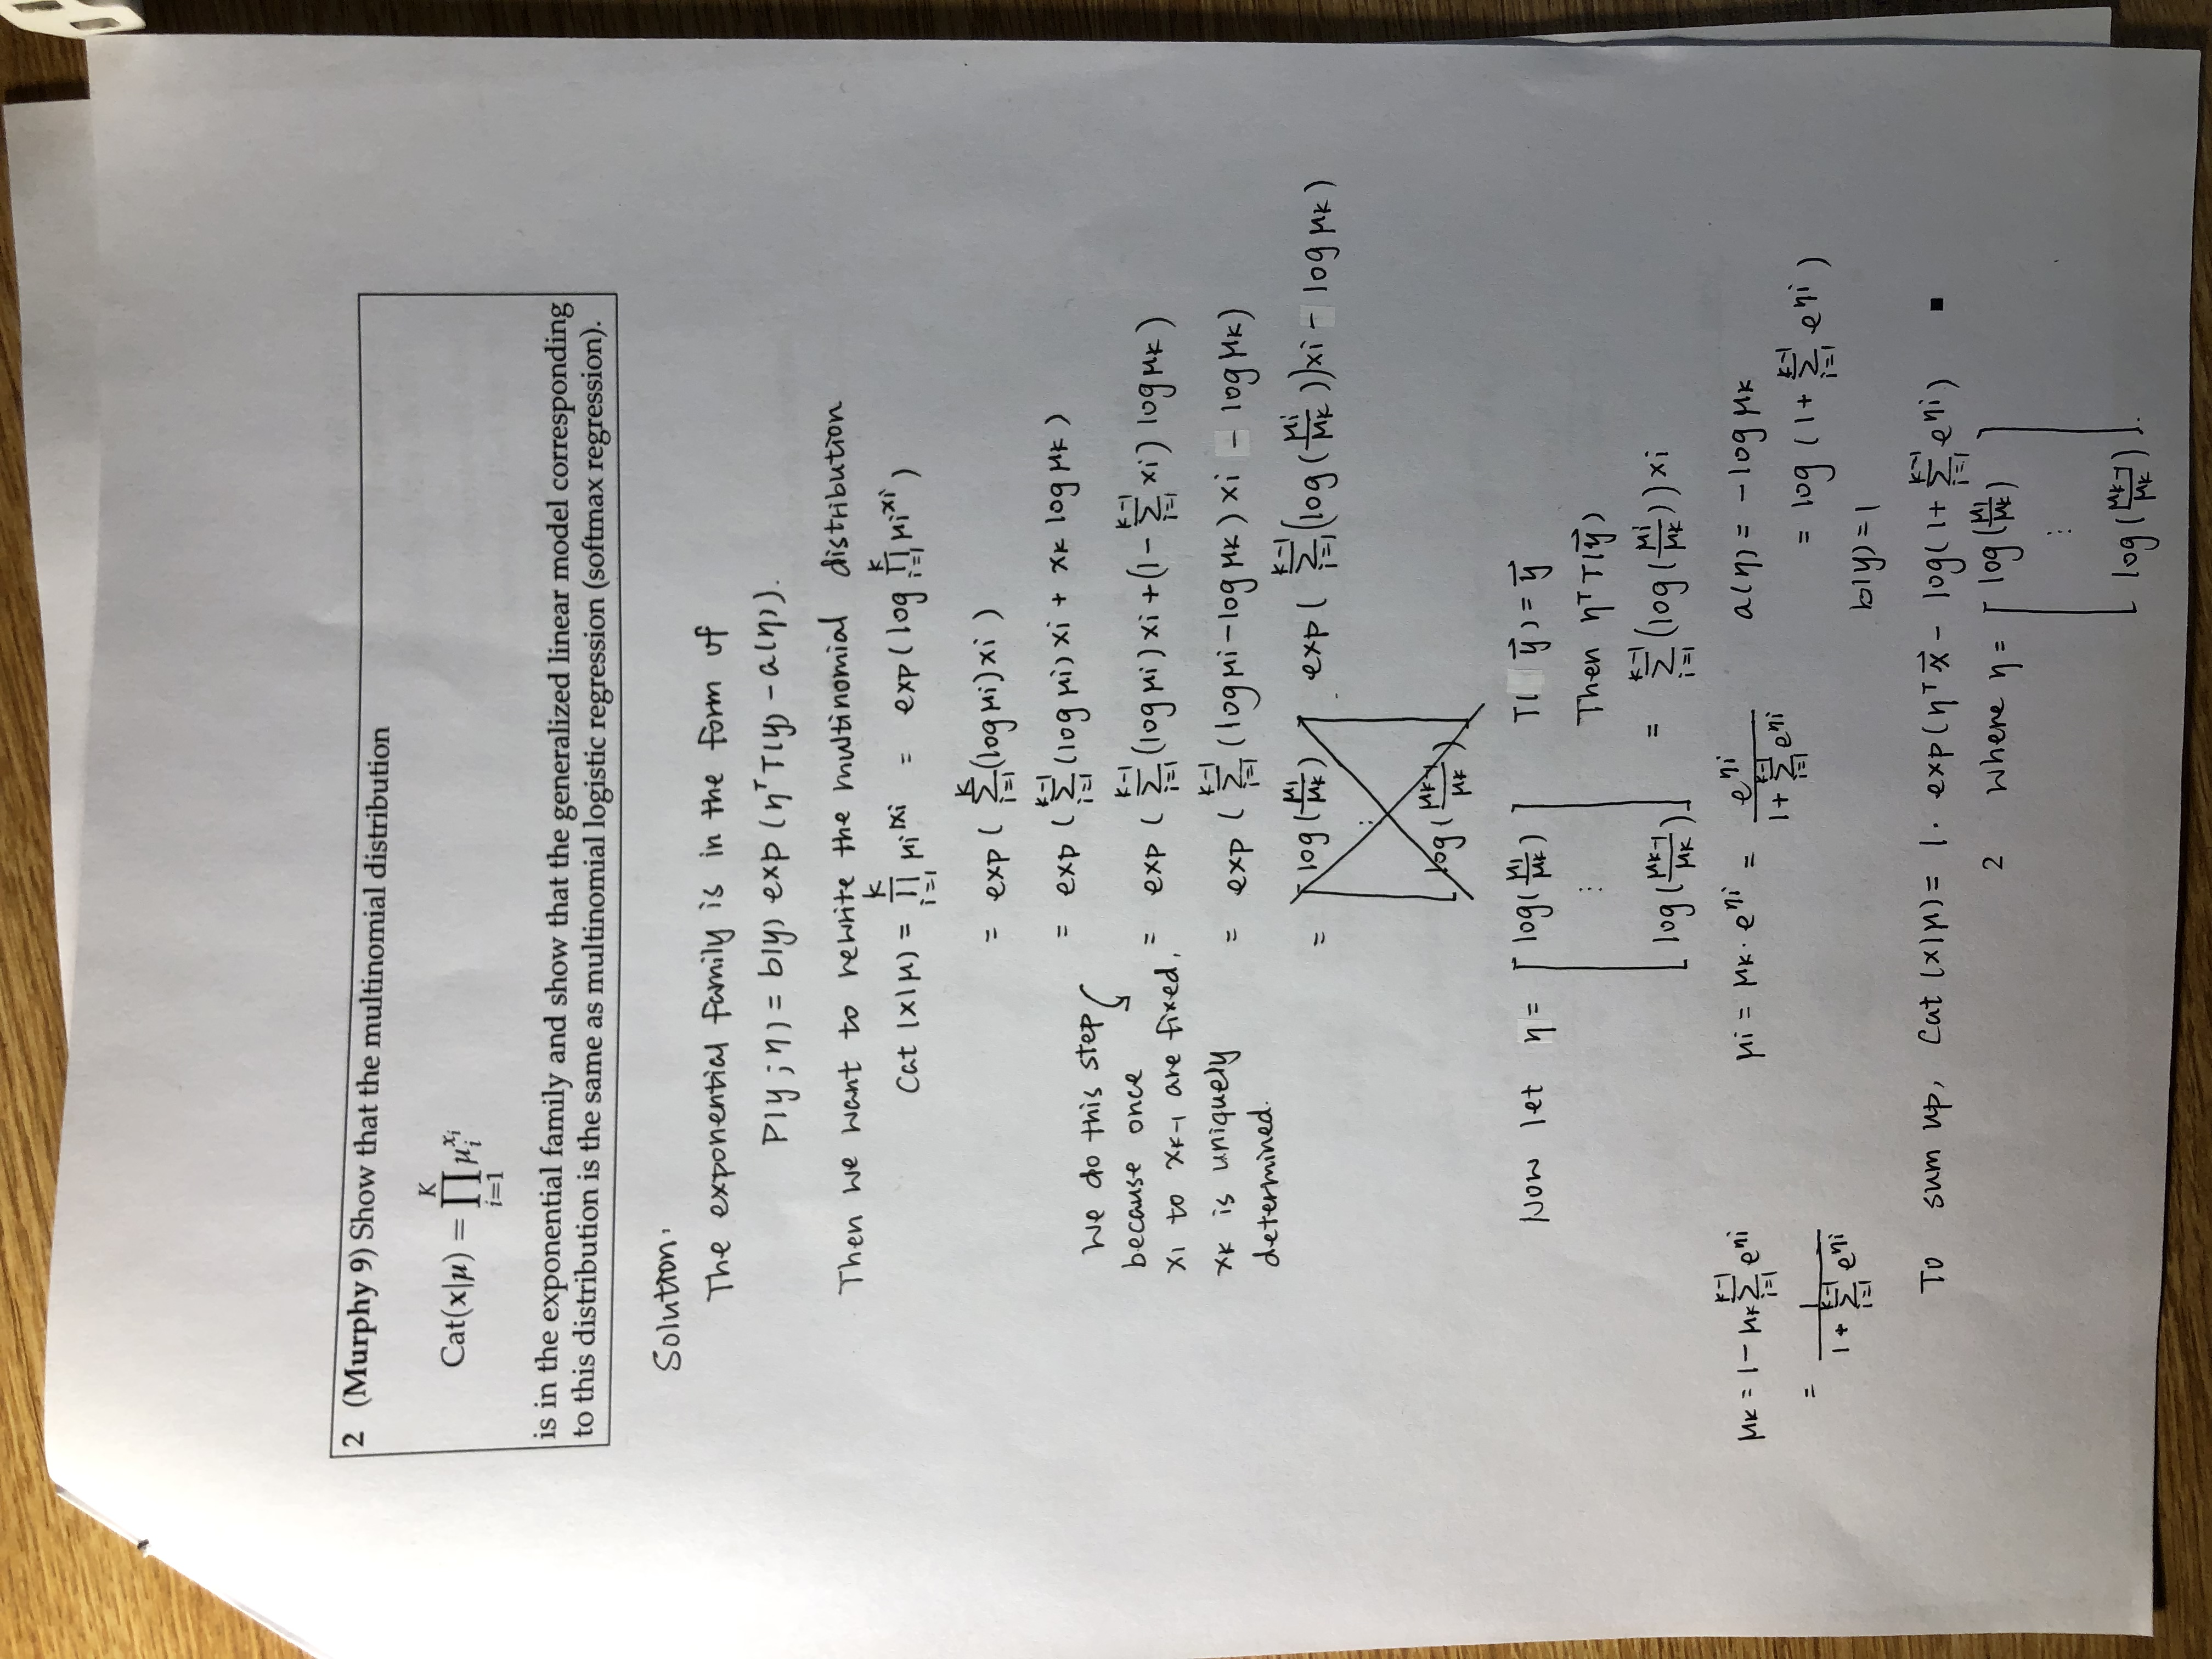 2 (Murphy 9) Show that the multinomial distribution
Cat(x|μ) = ∏_{i=1}^{K} μ_i^{x_i}
is in the exponential family and show that the generalized linear model corresponding
to this distribution is the same as multinomial logistic regression (softmax regression).
Solution.
The exponential family is in the form of
P(y; η) = b(y) exp(η^T T(y) - a(η)).
Then we want to rewrite the multinomial distribution
Cat(x|μ) = ∏_{i=1}^{k} μi^{xi} = exp(log ∏_{i=1}^{k} μi^{xi})
= exp( ∑_{i=1}^{k} (log μi) xi )
= exp( ∑_{i=1}^{k-1} (log μi) xi + xk log μk )
We do this step
because once
x1 to xk-1 are fixed,
xk is uniquely
determined.
= exp( ∑_{i=1}^{k-1} (log μi) xi + (1 - ∑_{i=1}^{k-1} xi) log μk )
= exp( ∑_{i=1}^{k-1} (log μi - log μk) xi - log μk )
= [ log(μ1/μk) ⋮ log(μk-1/μk) ] exp( ∑_{i=1}^{k-1} (log(μi/μk)) xi - log μk )
Now let η = [ log(μ1/μk) ⋮ log(μk-1/μk) ] T( y⃗) = y⃗
Then η^T T(y⃗)
= ∑_{i=1}^{k-1} (log(μi/μk)) xi
μk = 1 - μk ∑_{i=1}^{k-1} e^{ηi}
= 1 / (1 + ∑_{i=1}^{k-1} e^{ηi})
μi = μk · e^{ηi} = e^{ηi} / (1 + ∑_{i=1}^{k-1} e^{ηi})
a(η) = -log μk
= log (1 + ∑_{i=1}^{k-1} e^{ηi})
b(y) = 1
To sum up, Cat(x|μ) = 1 · exp(η^T x⃗ - log(1 + ∑_{i=1}^{k-1} e^{ηi}) ■
2 where η = [ log(μ1/μk) ⋮ log(μk-1/μk) ].